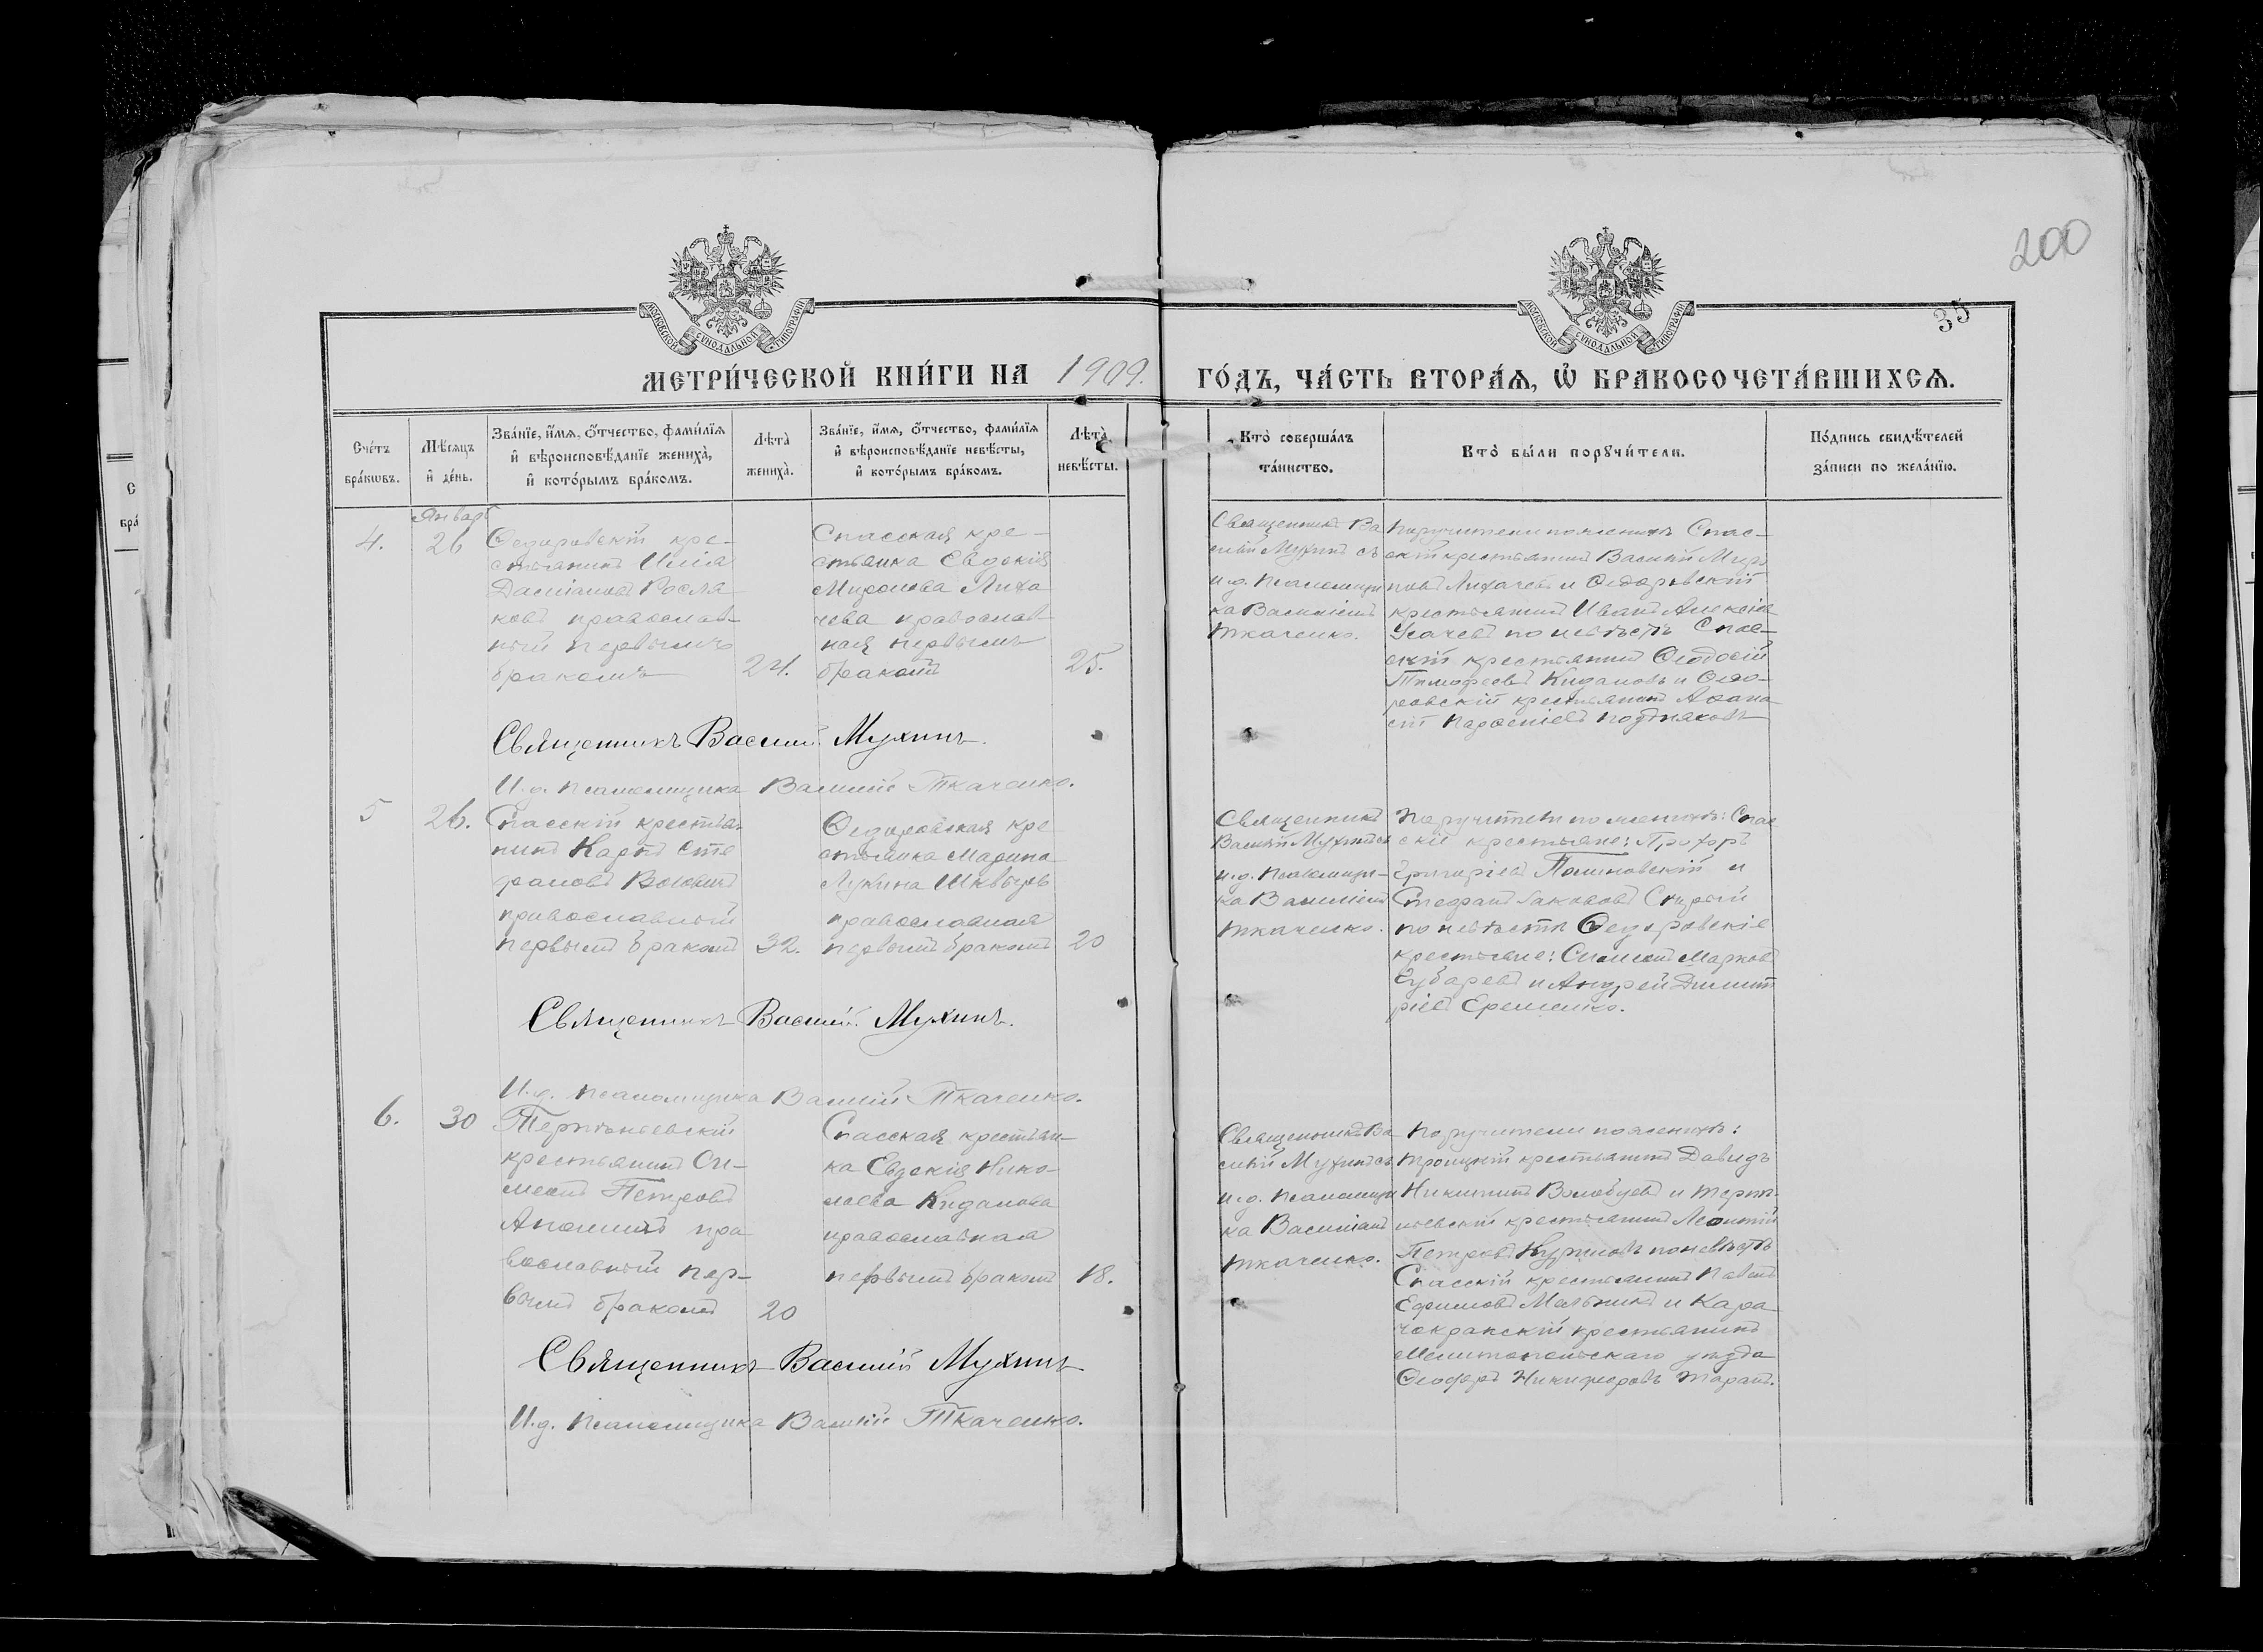 200
35
МОСКОВСКОЙ СѴНОДАЛЬНОЙ ТИПОГРАФІИ
МОСКОВСКОЙ СѴНОДАЛЬНОЙ ТИПОГРАФІИ
МЕТРИ́ЧЕСКОЙ КНИ́ГИ НА 1909. ГО́ДЪ, ЧА́СТЬ ВТОРА́Ѧ, Ѽ БРАКОСОЧЕТА́ВШИХСѦ.
Сче́тъ бра́кѡвъ.
Мѣ́сѧцъ и҆ де́нь.
Зва́нїе, и҆́мѧ, ѻ҆́тчество, фами́лїѧ
и҆ вѣроисповѣ́данїе жениха̀,
и҆ кото́рымъ бра́комъ.
Лѣта̀ жениха̀.
Зва́нїе, и҆́мѧ, ѻ҆́тчество, фами́лїѧ
и҆ вѣроисповѣ́данїе невѣ́сты,
и҆ кото́рымъ бра́комъ.
Лѣта̀ невѣ́сты.
Кто̀ соверша́лъ та́инство.
Кто̀ бы́ли порꙋчи́тели.
По́дпись свидѣ́телей
за́писи по жела́нїю.
Январь
4.
26
Ѳедоровскій кре-
стьянинъ Илія
Даміановъ Росля
ковъ православ-
ный первымъ
бракомъ
24.
Спасская кре-
стьянка Евдокія
Миронова Лиха
чева православ-
ная первымъ
бракомъ
25.
Священникъ Ва
силій Мухинъ съ
и.д. псаломщи
ка Василіемъ
Ткаченко.
Поручители по женихѣ Спас-
скій крестьянинъ Василій Миро
новъ Лихачевъ и Ѳедоровскій
крестьянинъ Иванъ Алексіев
Усачевъ по невѣстѣ Спас-
скій крестьянинъ Ѳеодосій
Тимофеевъ Кидаловъ и Ѳедо-
ровскій крестьянинъ Аѳана
сій
Священникъ Василій Мухинъ.
И.д. псаломщика Василій Ткаченко.
5
26.
Спасскій крестья-
нинъ Карпъ Сте
фановъ
православный
первымъ бракомъ
32.
Ѳедоровская кре
стьянка Марина
Лукина
православная
первымъ бракомъ
20
Священникъ
Василій Мухинъ съ
и.д. псаломщи-
ка Василіемъ
Ткаченко.
Поручители по женихѣ: Спас
скіе крестьяне: Прохоръ
Григоріевъ и
Стефанъ Іаковъ Скирый
по невѣстѣ Ѳедоровскіе
крестьяне: Симеонъ Марковъ
Губаревъ и Андрей Димит
ріевъ Еременко.
Священникъ Василій Мухинъ.
И.д. псаломщика Василій Ткаченко.
6.
30
Терпѣніевскій
крестьянинъ Си-
меонъ Петровъ
пра
вославный пер-
вымъ бракомъ
20
Спасская крестьян-
ка Евдокія Нико-
лаева Кидалова
православная
первымъ бракомъ
18.
Священникъ Ва
силій Мухинъ съ
и.д. псаломщи
ка Василіемъ
Ткаченко.
Поручители по женихѣ:
Троицкій крестьянинъ Давидъ
Никитинъ Волобуевъ и Терпѣ-
ніевскій крестьянинъ Леонтій
Петровъ Куриловъ по невѣстѣ
Спасскій крестьянинъ Павелъ
Ефимовъ Мельникъ и Кара-
чокракскій крестьянинъ
Мелитопольскаго уѣзда
Ѳеодоръ Никифоровъ Таранъ.
Священникъ Василій Мухинъ
И.д. псаломщика Василій Ткаченко.